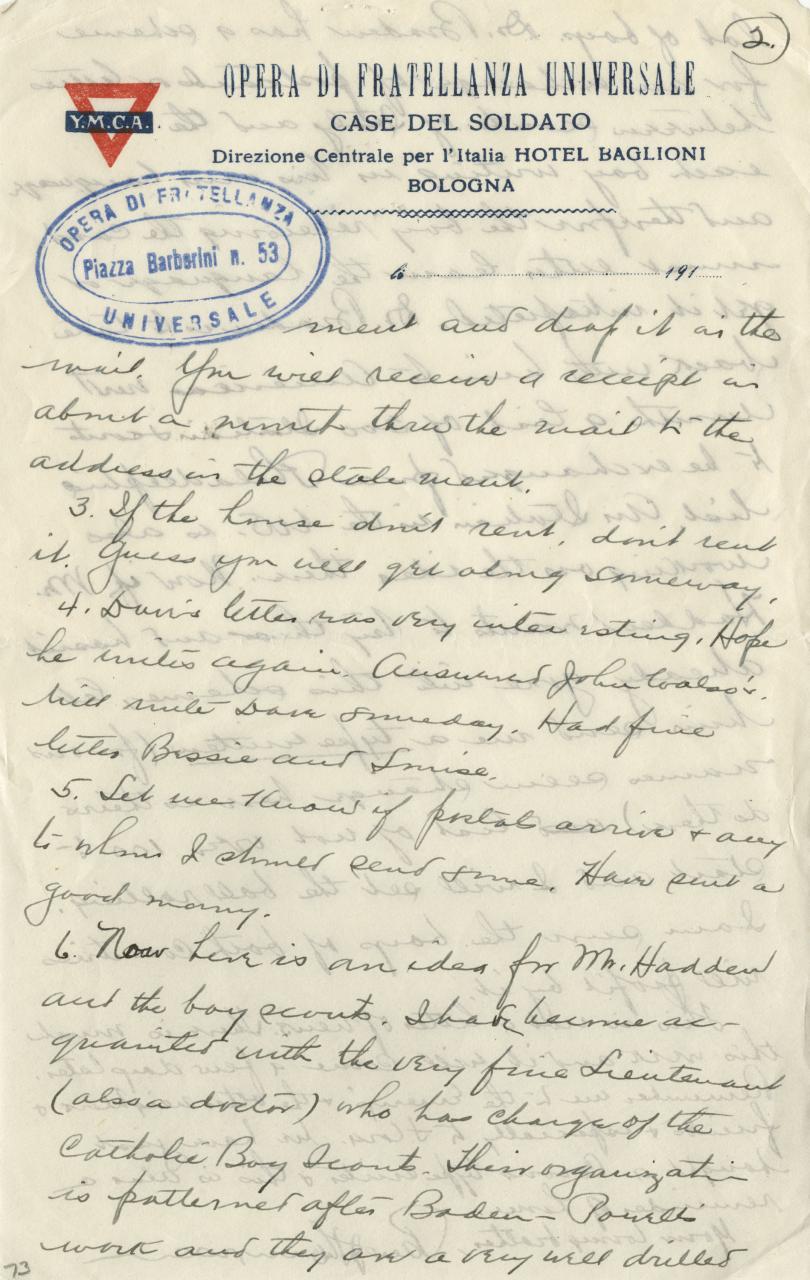 2.
OPERA DI FRATELLANZA UNIVERSALE
Y.M.C.A.
CASE DEL SOLDATO
Direzione Centrale per l'Italia HOTEL BAGLIONI
BOLOGNA
OPERA DI FRATELLANZA
Piazza Barberini n. 53
UNIVERSALE
li 191
ment and drop it in the
mail. You will receive a receipt in
about a month thru the mail to the
address in the statement.
3. If the house don't rent, don't rent
it. Guess you will get along someway.
4. Dave's letter was very interesting. Hope
he writes again. Answered John Walso's.
Will write Dave someday. Had fine
letter Bessie and Louise.
5. Let me know if postals arrive & any
to whom I should send some. Have sent a
good many.
6. Now here is an idea for Mr. Hadden
and the boy scouts. I have become ac-
quainted with the very fine Lieutenant
(also a doctor) who has charge of the
Catholic Boy Scouts. Their organization
is patterned after Baden-Powell's
work and they are a very well drilled
73